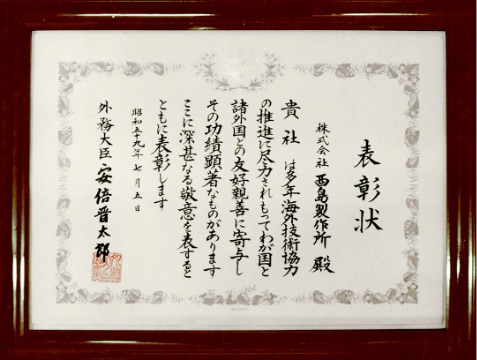 表彰状
株式会社 酉島製作所 殿
貴社 は多年海外技術協力
の推進に尽力されもってわが国と
諸外国との友好親善に寄与し
その功績顕著なものがあります
ここに深甚なる敬意を表すると
ともに表彰します
昭和五十九年七月五日
外務大臣 安倍晋太郎